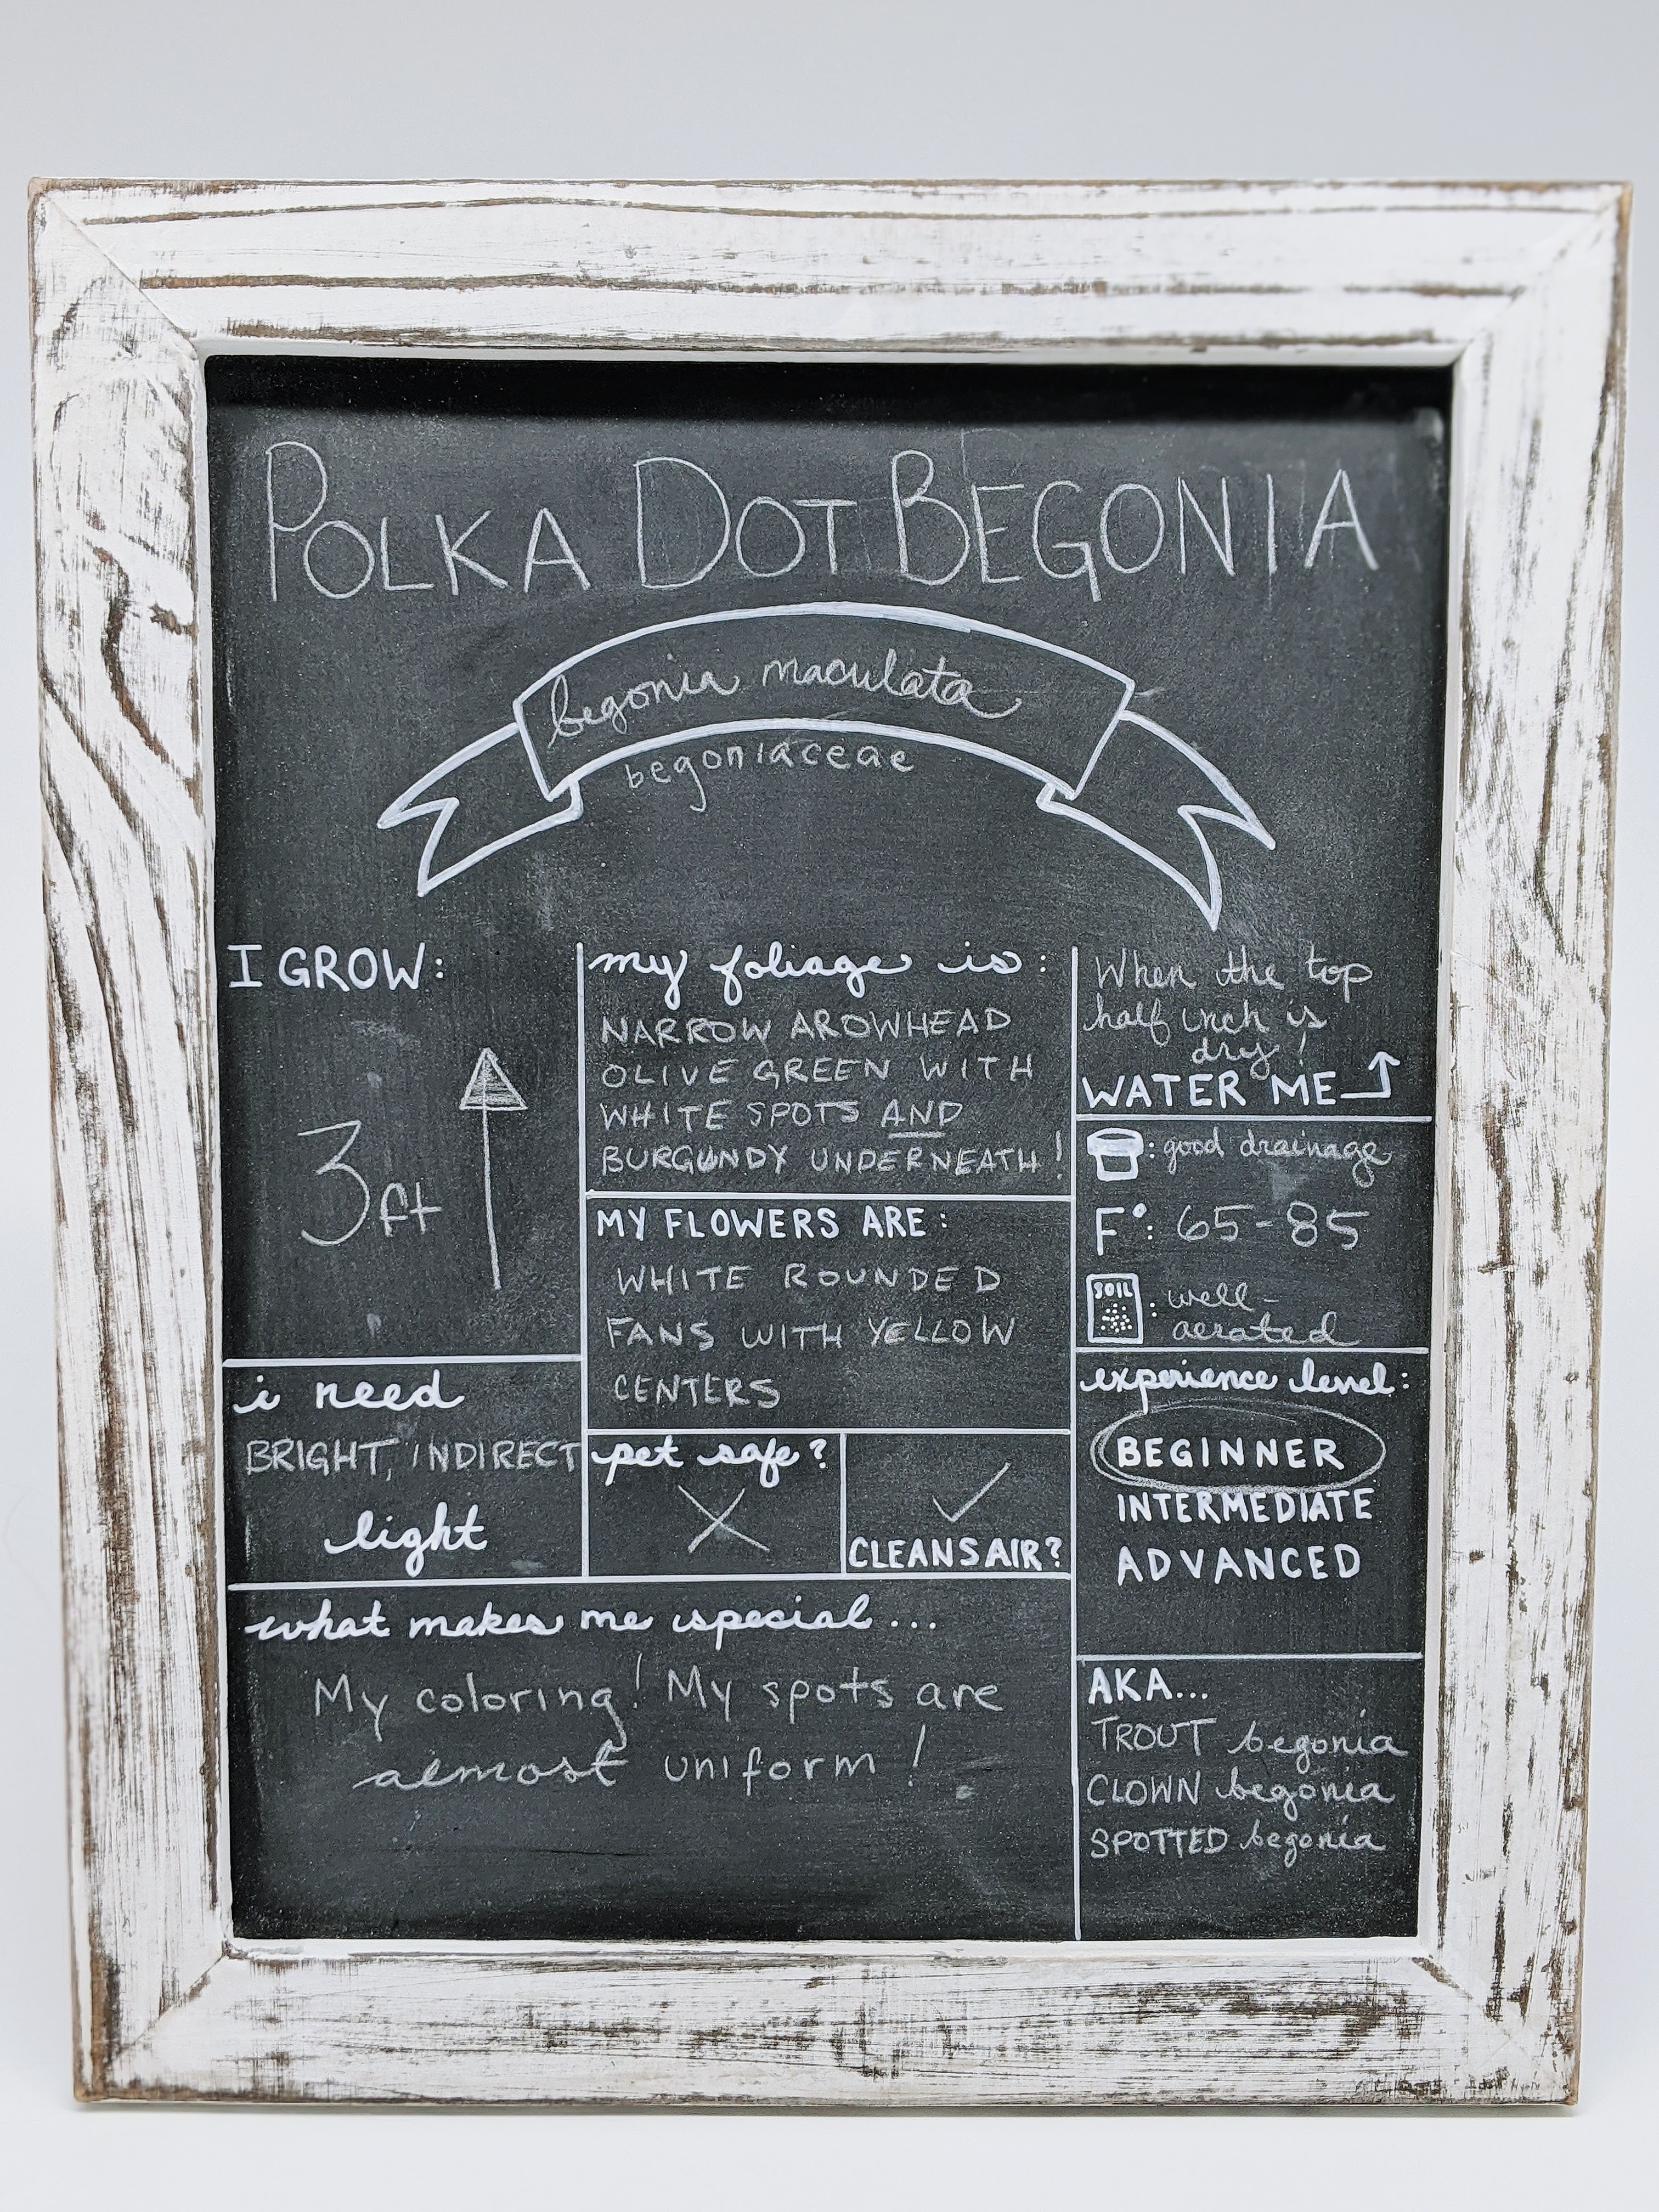 POLKA DOT BEGONIA
begonia maculata
begoniaceae
I GROW:
3 ft
i need
BRIGHT, INDIRECT
light
my foliage is:
NARROW AROWHEAD
OLIVE GREEN WITH
WHITE SPOTS AND
BURGUNDY UNDERNEATH!
MY FLOWERS ARE:
WHITE ROUNDED
FANS WITH YELLOW
CENTERS
pet safe?
CLEANS AIR?
what makes me special...
My coloring! My spots are
almost uniform!
When the top
half inch is
dry!
WATER ME
: good drainage
F°: 65-85
SOIL
: well-
aerated
experience level:
BEGINNER
INTERMEDIATE
ADVANCED
AKA...
TROUT begonia
CLOWN begonia
SPOTTED begonia